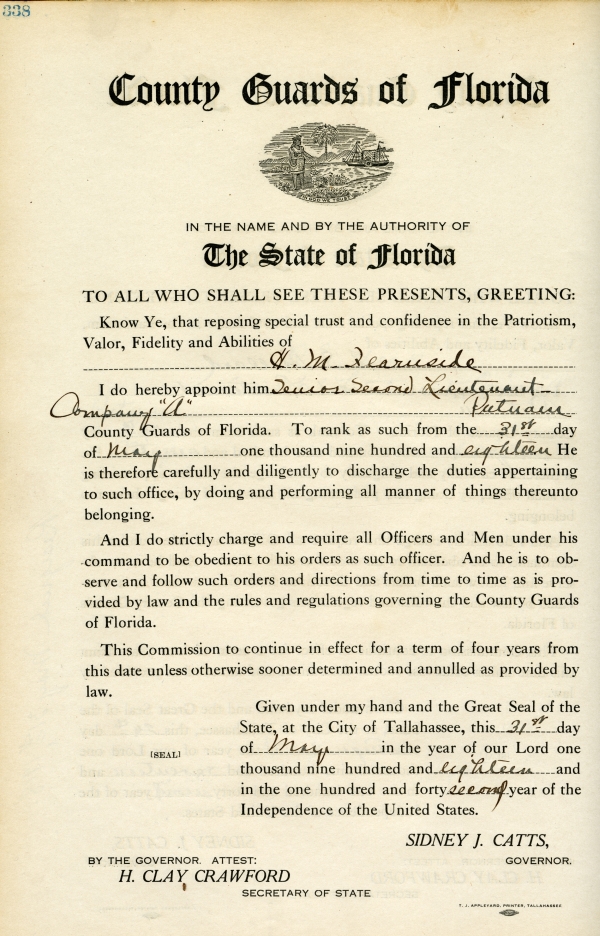 338
County Guards of Florida
IN GOD WE TRUST
IN THE NAME AND BY THE AUTHORITY OF
The State of Florida
TO ALL WHO SHALL SEE THESE PRESENTS, GREETING:
Know Ye, that reposing special trust and confidenee in the Patriotism,
Valor, Fidelity and Abilities of
H. M. Fearnside
I do hereby appoint him Senior Second Lieutenant
Company "A" Putnam
County Guards of Florida. To rank as such from the 31st day
of May one thousand nine hundred and eighteen He
is therefore carefully and diligently to discharge the duties appertaining
to such office, by doing and performing all manner of things thereunto
belonging.
And I do strictly charge and require all Officers and Men under his
command to be obedient to his orders as such officer. And he is to ob-
serve and follow such orders and directions from time to time as is pro-
vided by law and the rules and regulations governing the County Guards
of Florida.
This Commission to continue in effect for a term of four years from
this date unless otherwise sooner determined and annulled as provided by
law.
Given under my hand and the Great Seal of the
State, at the City of Tallahassee, this 31st day
of May in the year of our Lord one
[SEAL]
thousand nine hundred and eighteen and
in the one hundred and forty second year of the
Independence of the United States.
SIDNEY J. CATTS,
BY THE GOVERNOR. ATTEST: GOVERNOR.
H. CLAY CRAWFORD
SECRETARY OF STATE
T. J. APPLEYARD, PRINTER, TALLAHASSEE